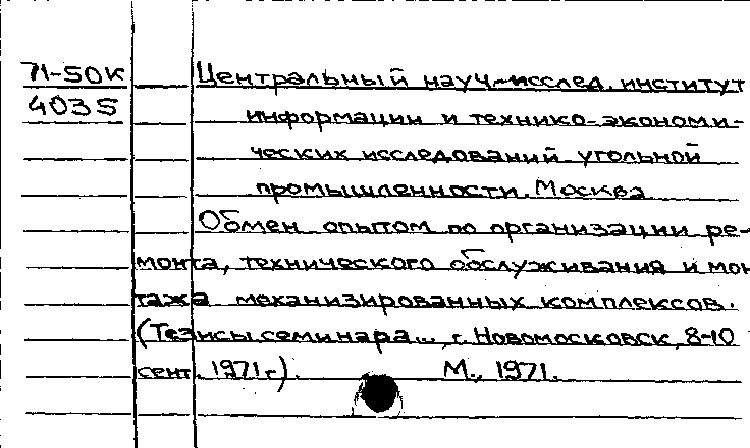 71-50К Центральный науч-исслед. институт
4035 информации и технико-экономи-
ческих исследований угольной
промышленности. Москва
Обмен опытом по организации ре-
монта, технического обслуживания и мон
тажа механизированных комплексов.
(Тезисы семинара..., г. Новомосковск, 8-10
сент. 1971 г.). М., 1971.